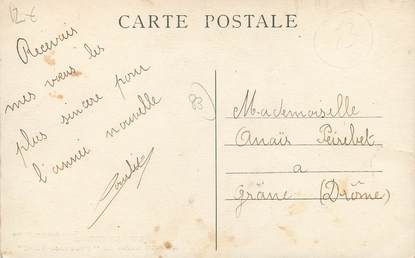 12 €
CARTE POSTALE
Recevais
mes vœux les
plus sincère pour
l'année nouvelle
83
Mademoiselle
Anaïs Peirebet
a
Grâne (Drôme)